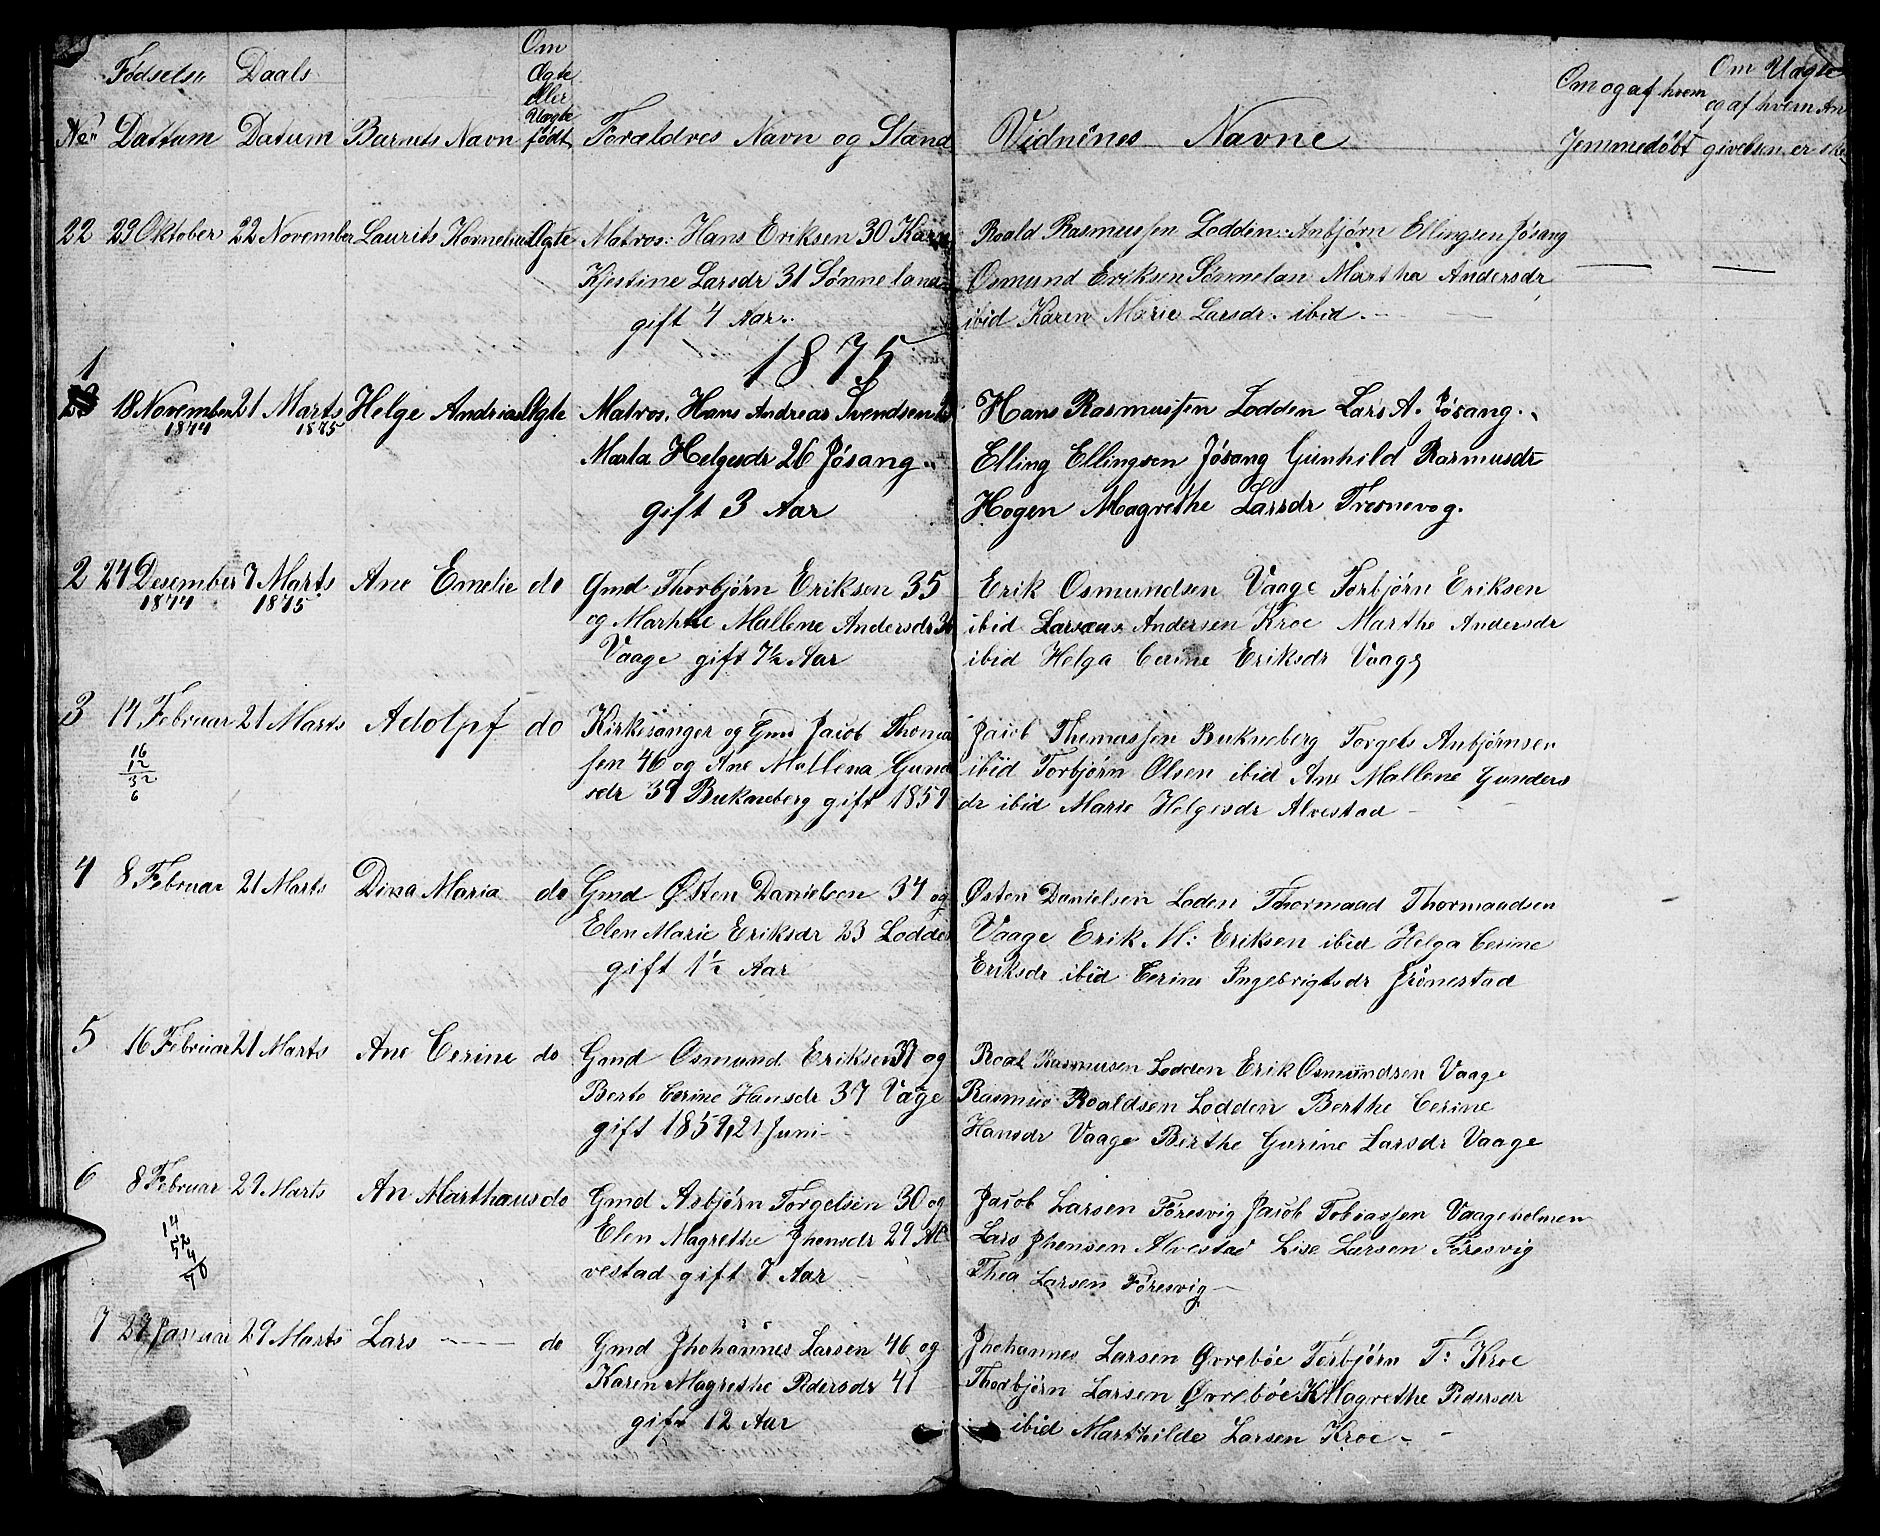 Fødselse Daabs
Om
Ægte
eller
Uægte
No Dattum Datum Barnets Navn født Forældres Navn og Stand
22 29 Oktober 22 November Laurits Kornelius Ægte Matros: Hans Eriksen 30 Karen
Kjestine Larsdr 31 Sønneland
gift 4 Aar.
1875
1 18 November 21 Marts Helge Andrias Ægte Matros. Hans Andreas Svendsen
1874 1875
Marta Helgesdr 26 Jósang
gift 3 Aar
2 24 Desember 7 Marts Ane Emelie do Gmd Thorbjörn Eriksen 35
1874 1875
og Marhte Mallene Andersdr
Vaage gift 7½ Aar
3 14 Februar 21 Marts Adolpf do Kirkesanger og Gmd Jacob Thomas
sen 46 og Ane Mallena Gund
sdr 39 Bukneberg gift 1859
16
12
32
6
4 8 Februar 21 Marts Dina Maria do Gmd Østen Danielsen 34 og
Elen Marie Eriksdr 23 Lodden
gift 1½ Aar
5 16 Februar 21 Marts Ane Cerine do Gmd Osmund Eriksen og
Berte Cerine Hansdr 37 Vage
gift 1859, 21 Juni
6 8 Februar 29 Marts An Marthaus do Gmd Asbjørn Torgelsen 30 og
Elen Magrethe Jhensdr 29 Al
vestad gift 7 Aar
14
52
4
70
7 Januar 29 Marts Lars do Gmd Jhohannes Larsen 46 og
Karen Magrethe Pedersdr 41
gift 12 Aar
Vidnines Navne
Om og af hvem
Jemmedøbt
Om Uægte
og af hvem An
givelsen er ske
Roald Rasmussen Lodden: Anbjørn Ellingsen Jósang
Osmund Eriksen Sønnelan Martha Andersdr
ibid Karen Marie Larsdr. ibid.
Hans Rasmussen Lodden Lars A. Jósang.
Elling Ellingsen Jósang Gunhild Rasmusdr
Hogen Magrethe Larsdr Tresnevog.
Erik Osmundsen Vaage Torbjörn Eriksen
ibid Larseus Andersen Kroe Marthe Andersdr
ibid Helga Cerine Eriksdr Vaage
Jacob Thomassen Bukneberg Torgels Anbjørnsen
ibid Torbjörn Olsen ibid Ane Mallene Gunders
dr ibid Marie Helgesdr Alvestad
Østen Danielsen Loden Thormaad Thormaadsen
Vaage Erik M: Eriksen ibid Helga Cerine
Eriksdr ibid Cerine Ingebrigtsdr Grönestad
Roal Rasmusen Lodden Erik Osmundsen Vaage
Rasmus Roaldsen Lodden Berthe Cerine
Hansdr Vaage Berthe Gurine Larsdr Vaage
Jacob Larsen Föresvig Jacob Tobiassen Vaageholmen
Lars Jhensen Alvestad Lise Larsen Föresvig
Thea Larsen Föresvig
Jhohannes Larsen Øvrebóe Torbjörn T: Kroe
Thorbjörn Larsen Øvrebóe K Magrethe Pedersdr
ibid Marthilde Larsen Kroe